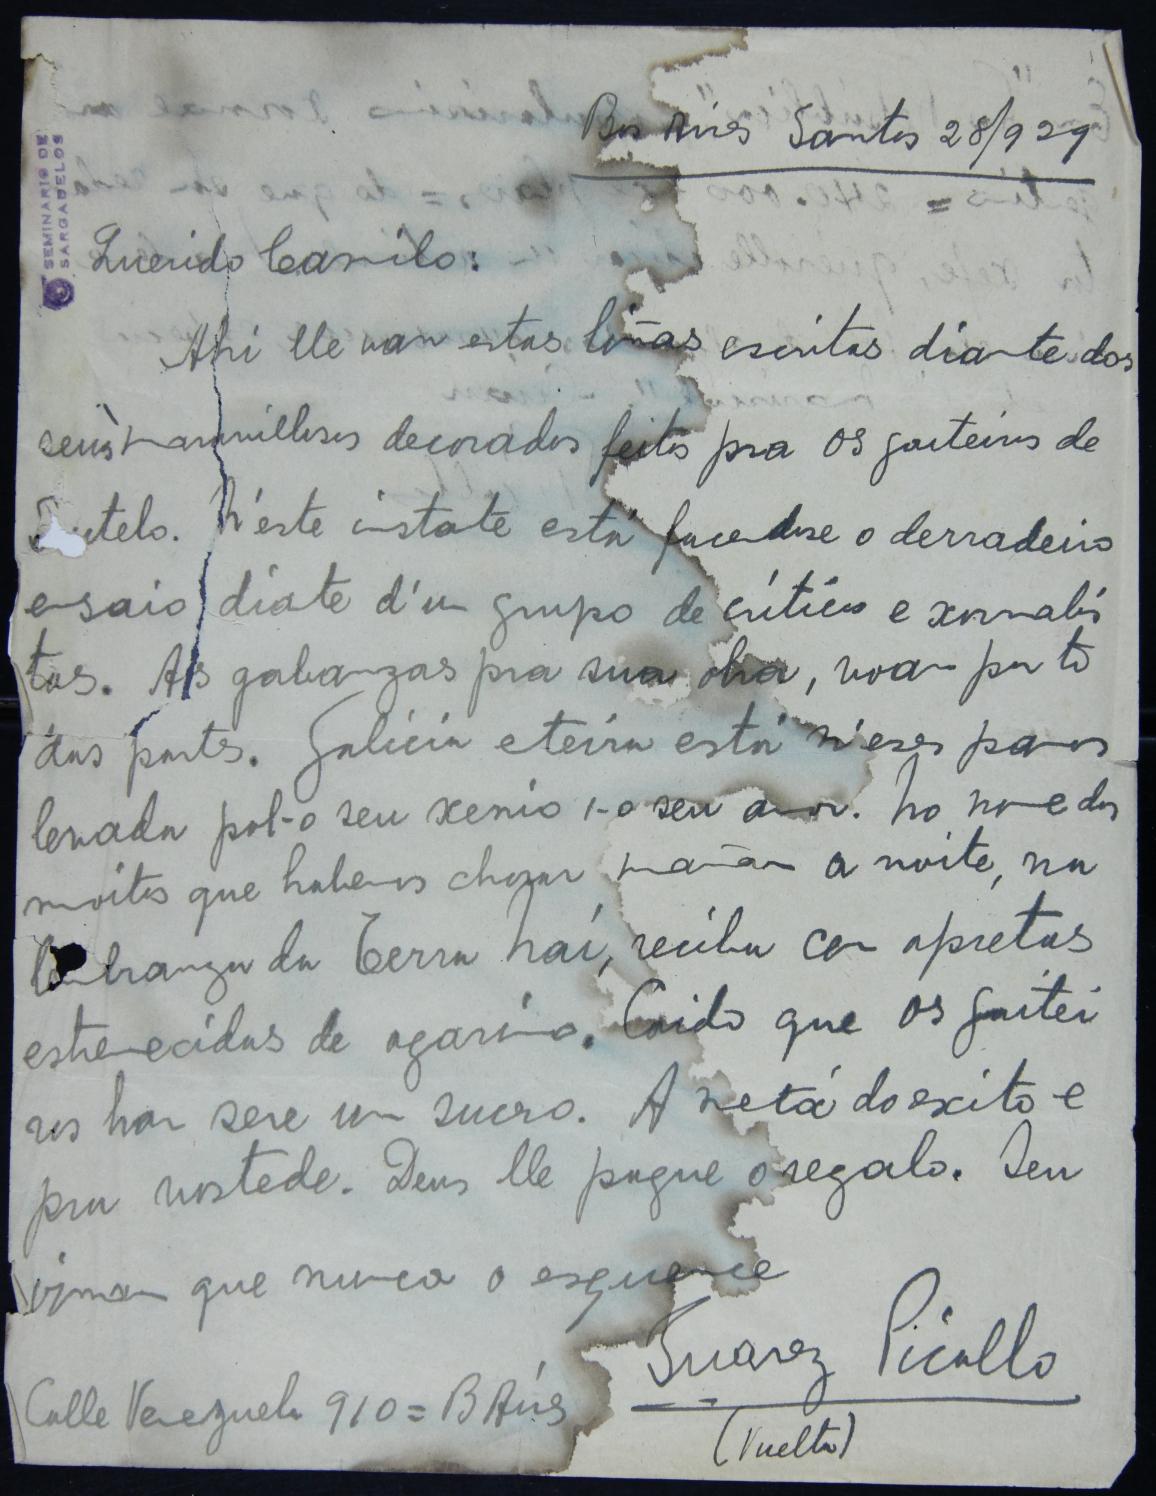 SEMINARIO DE
SARGADELOS
Bos Aires Santos 28/9 29
Querido Camilo:
Ahi lle van estas liñas escritas diante dos
seus maravillosos decorados feitos pra os gaiteiros de
Soutelo. N'este instate está facendose o derradeiro
ensaio diate d'un grupo de críticos e xornalis
tas. As gabanzas pra sua obra, voan por to
das partes. Galicia eteira está n'eses panos
levada pol-o seu xenio i-o seu amor. No nome dos
moitos que habemos chorar mañan a noite, na
lembranza da Terra Nai, reciba con apretas
estremecidas de agarimo. Coido que os gaitei
ros han sere un suceso. A metá do exito e
pra vostede. Deus lle pague o regalo. Seu
irman que nunca o esquence
Suarez Picallo
Calle Venezuela 910 = B Aires
(Vuelta)